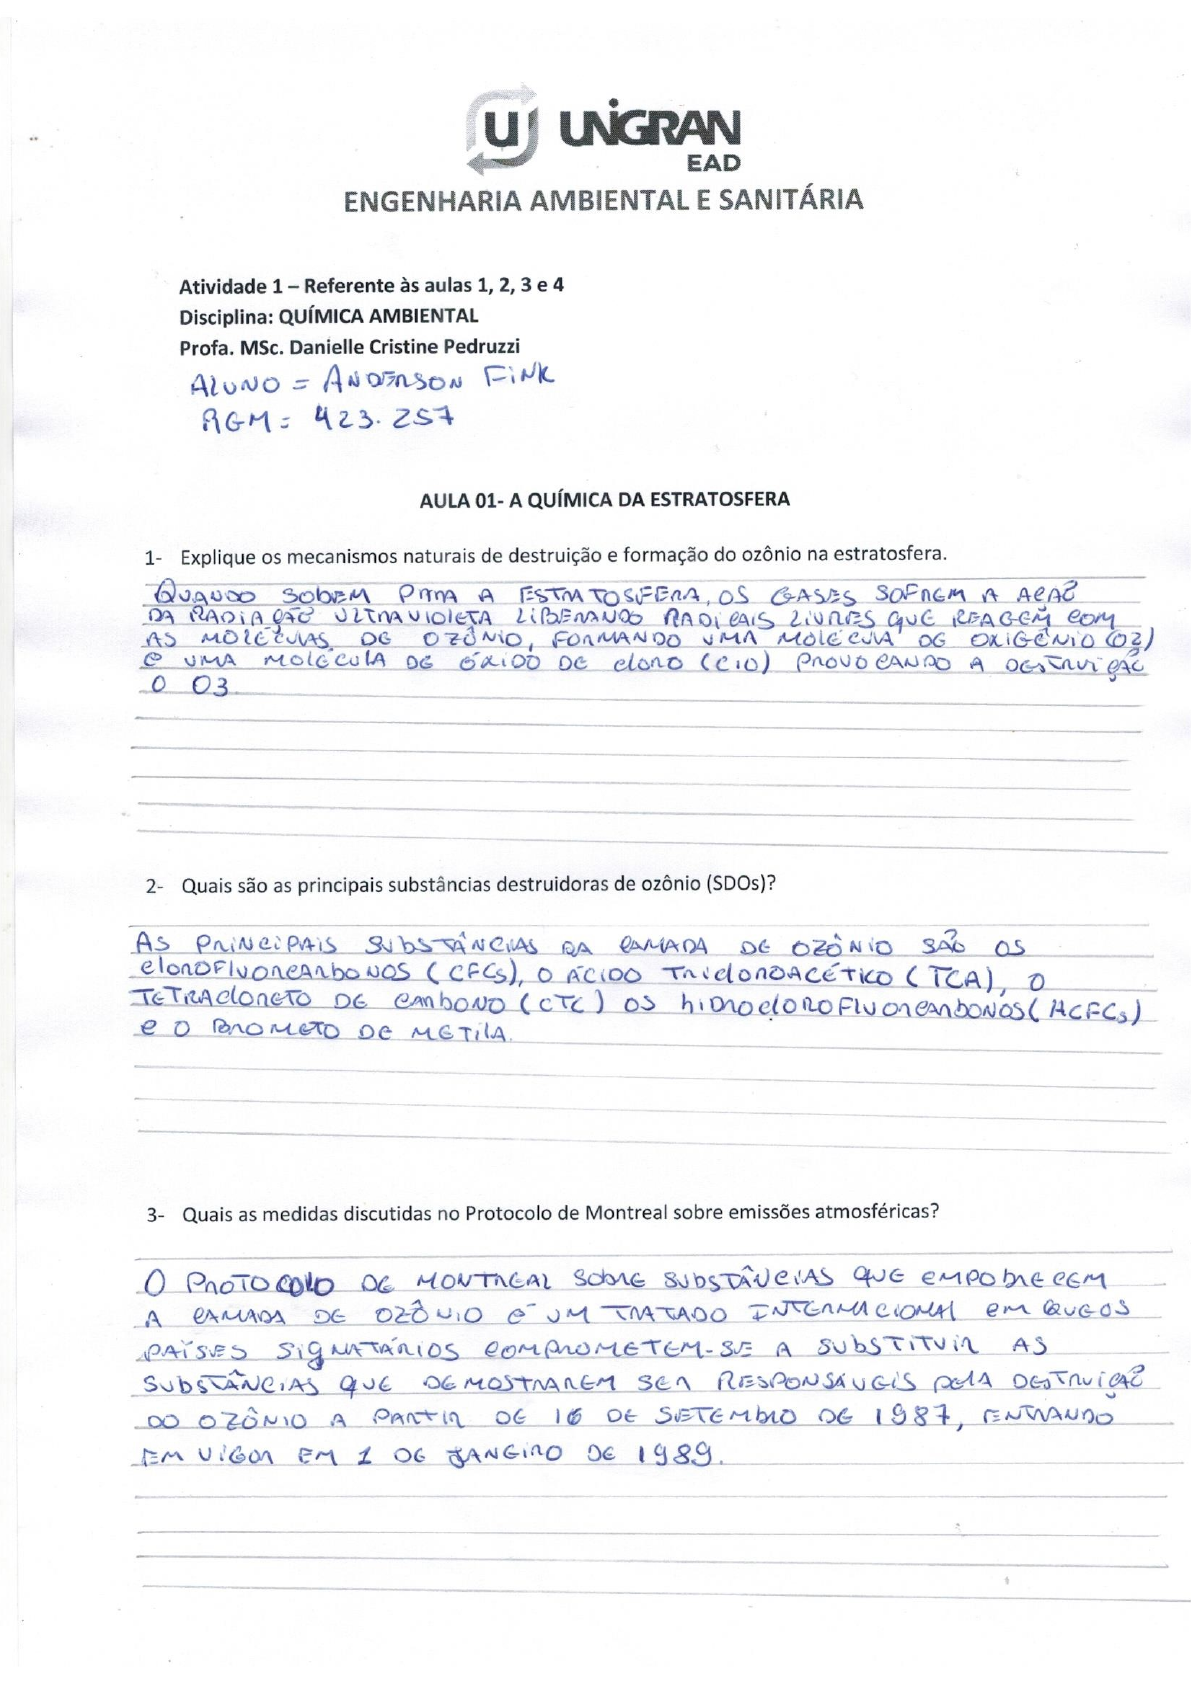 U UNIGRAN
EAD
ENGENHARIA AMBIENTAL E SANITÁRIA
Atividade 1 – Referente às aulas 1, 2, 3 e 4
Disciplina: QUÍMICA AMBIENTAL
Profa. MSc. Danielle Cristine Pedruzzi
ALUNO = ANDERSON FINK
RGM = 423.257
AULA 01- A QUÍMICA DA ESTRATOSFERA
1- Explique os mecanismos naturais de destruição e formação do ozônio na estratosfera.
QUANDO SOBEM PARA A ESTRATOSFERA, OS GASES SOFREM A AÇÃO
DA RADIAÇÃO ULTRAVIOLETA LIBERANDO RADICAIS LIVRES QUE REAGEM COM
AS MOLÉCULAS DE OZÔNIO, FORMANDO UMA MOLÉCULA DE OXIGÊNIO (O2)
E UMA MOLÉCULA DE ÓXIDO DE CLORO (ClO) PROVOCANDO A DESTRUIÇÃO
O O3
2- Quais são as principais substâncias destruidoras de ozônio (SDOs)?
AS PRINCIPAIS SUBSTÂNCIAS DA CAMADA DE OZÔNIO SÃO OS
CLOROFLUORCARBONOS (CFCs), O ÁCIDO TRICLOROACÉTICO (TCA), O
TETRACLORETO DE CARBONO (CTC) OS HIDROCLOROFLUORCARBONOS (HCFCs)
E O BROMETO DE METILA.
3- Quais as medidas discutidas no Protocolo de Montreal sobre emissões atmosféricas?
O PROTOCOLO DE MONTREAL SOBRE SUBSTÂNCIAS QUE EMPOBRECEM
A CAMADA DE OZÔNIO É UM TRATADO INTERNACIONAL EM QUE OS
PAÍSES SIGNATÁRIOS COMPROMETEM-SE A SUBSTITUIR AS
SUBSTÂNCIAS QUE DEMOSTRAREM SER RESPONSÁVEIS PELA DESTRUIÇÃO
DO OZÔNIO A PARTIR DE 16 DE SETEMBRO DE 1987, ENTRANDO
EM VIGOR EM 1 DE JANEIRO DE 1989.